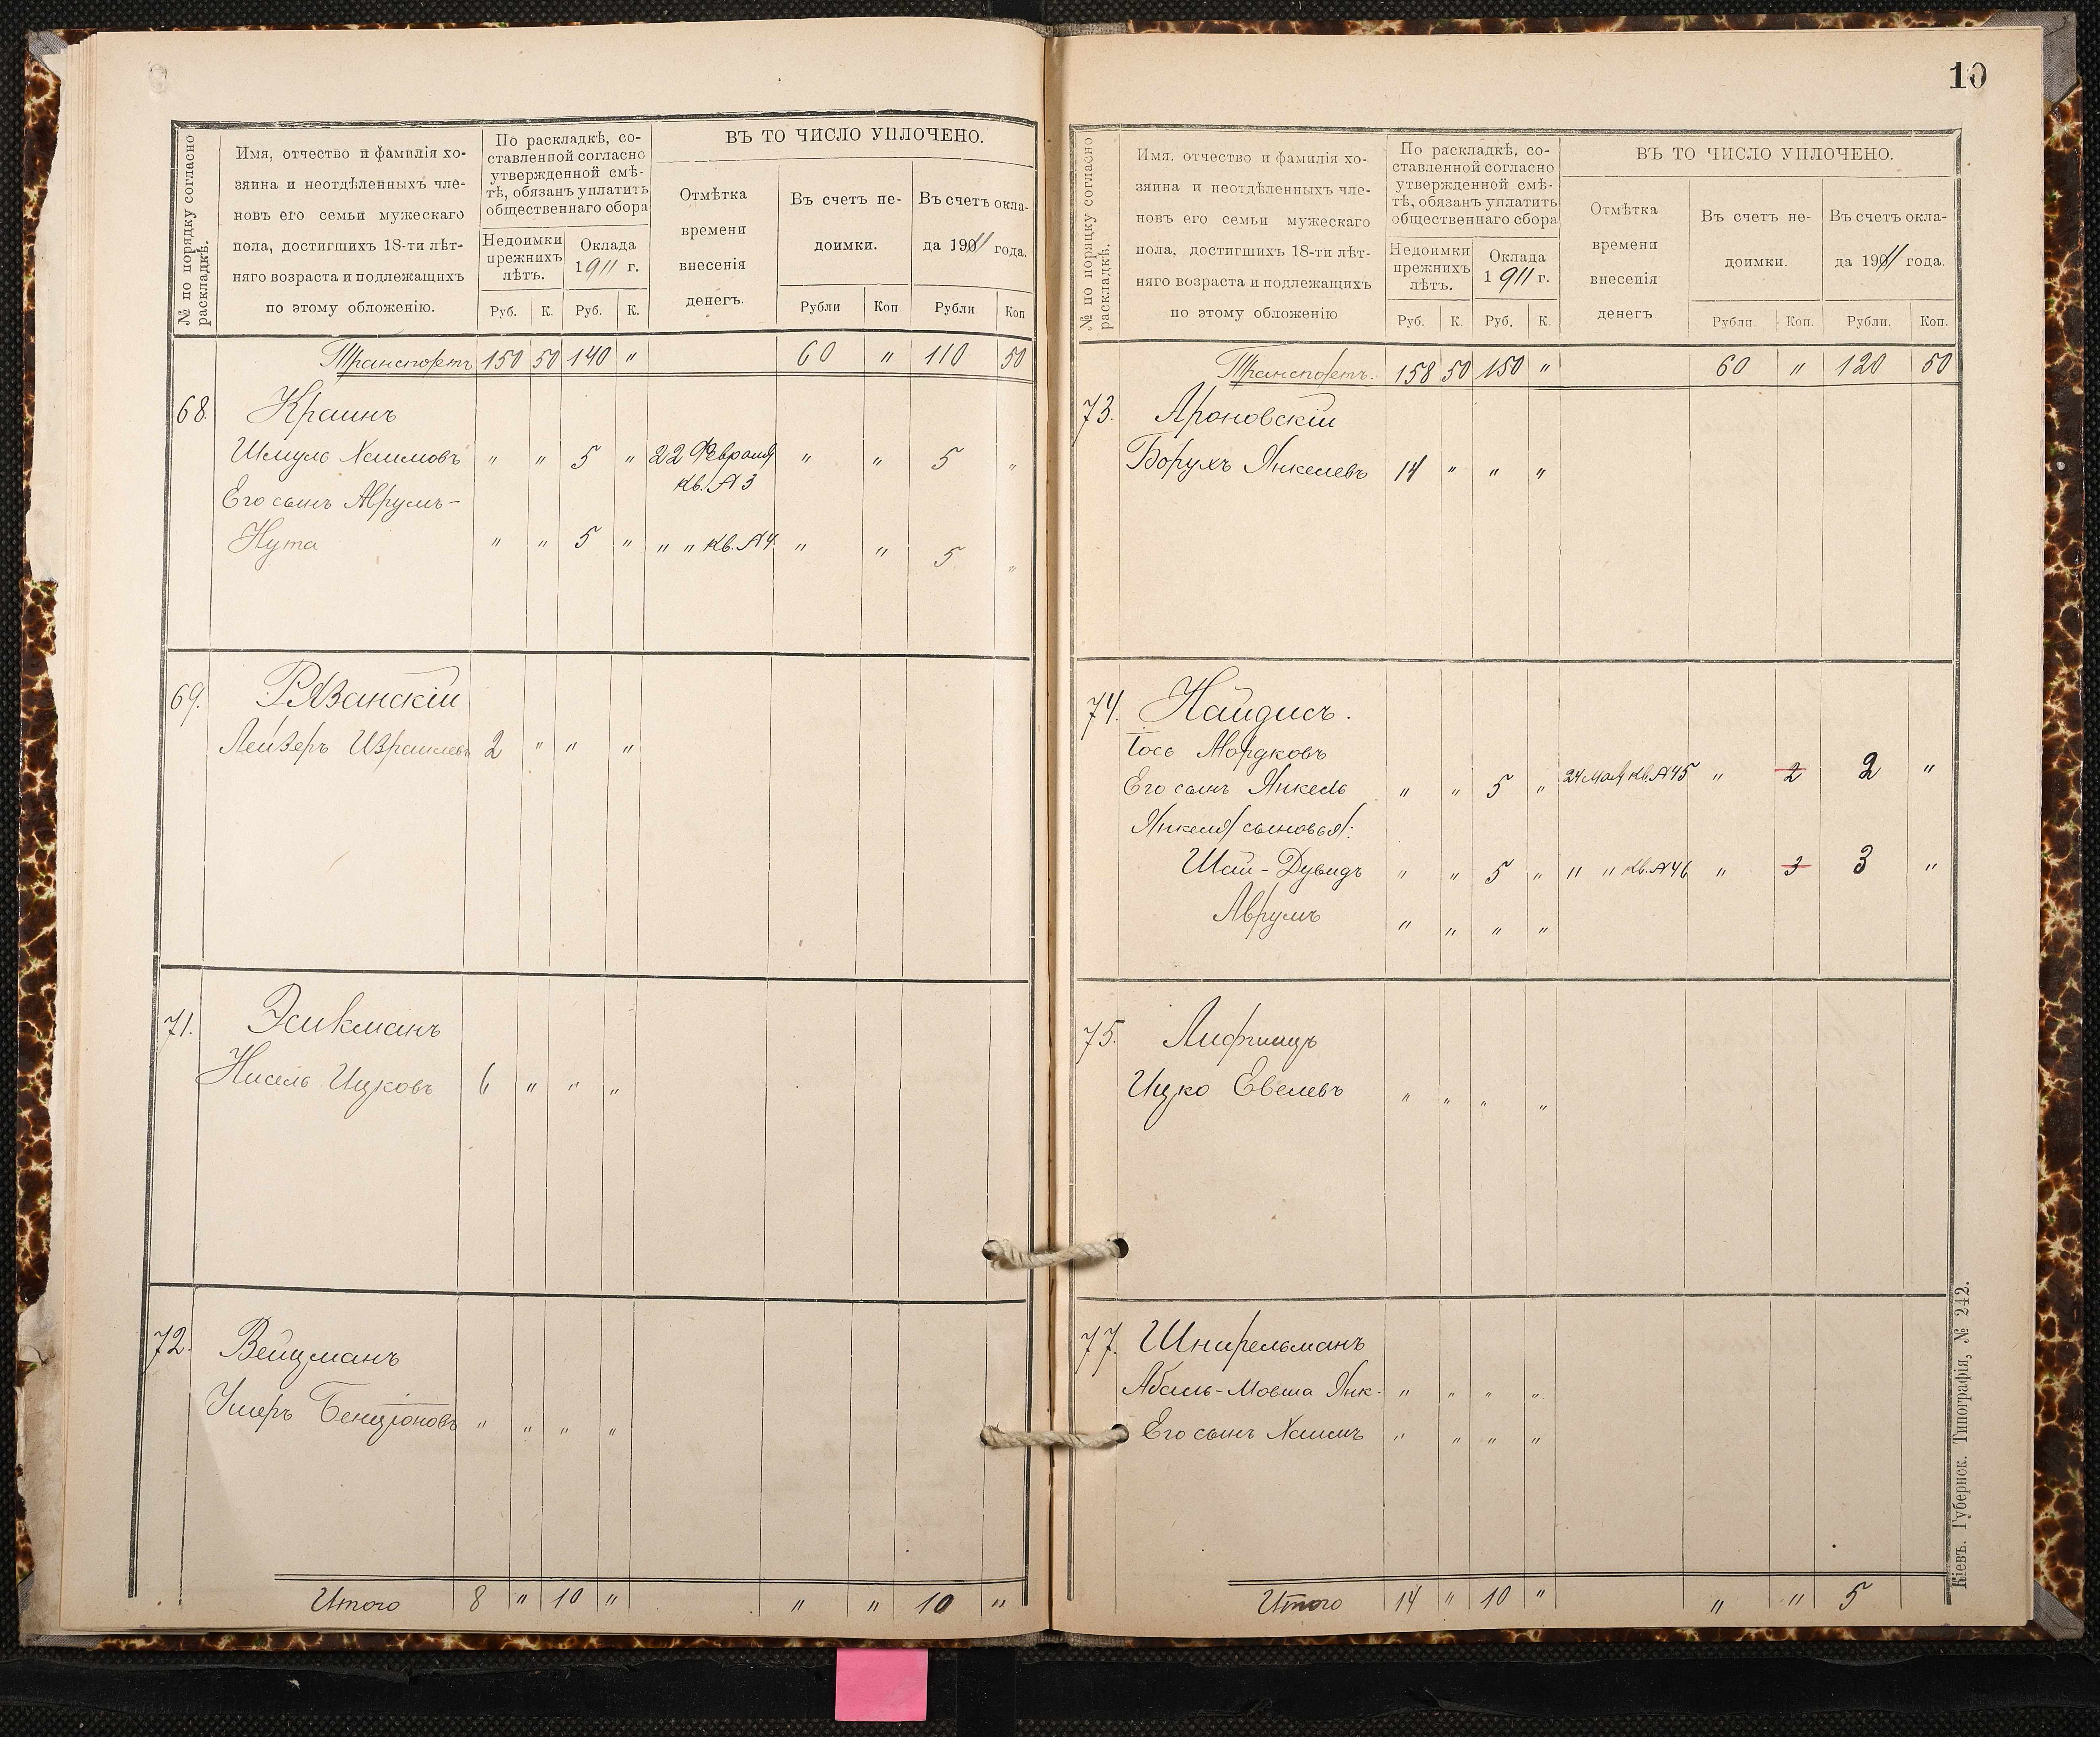 № по порядку согласно раскладкѣ.
Имя, отчество и фамилія хо-
зяина и неотдѣленныхъ чле-
новъ его семьи мужескаго
пола, достигшихъ 18-ти лѣт-
няго возраста и подлежащихъ
по этому обложенію.
По раскладкѣ, со-
ставленной согласно
утвержденной смѣ-
тѣ, обязанъ уплатить
общественнаго сбора
Недоимки
прежнихъ
лѣтъ.
Оклада
1911 г.
Руб. К. Руб. К.
ВЪ ТО ЧИСЛО УПЛОЧЕНО.
Отмѣтка
времени
внесенія
денегъ.
Въ счетъ не-
доимки.
Рубли Коп
Въ счетъ окла-
да 19011 года.
Рубли Коп
Транспортъ 150 50 140 " 60 " 110 50
68. Краинъ
Шмуль Хаимовъ " " 5 " 22 Февраля " " 5 "
кв. № 3
Его сынъ Аврумъ-
Нута " " 5 " " " кв. № 4. " " 5 "
69. Рязанскій
Лейзеръ Израилевъ 2 " " "
71. Эликманъ
Нисель Ицковъ 6 " " "
72. Вейцманъ
Ушеръ Бенціоновъ " " " "
Итого 8 " 10 " " " 10 "
10
№ по порядку согласно раскладкѣ.
Имя, отчество и фамилія хо-
зяина и неотдѣленныхъ чле-
новъ его семьи мужескаго
пола, достигшихъ 18-ти лѣт-
няго возраста и подлежащихъ
по этому обложенію
По раскладкѣ, со-
ставленной согласно
утвержденной смѣ-
тѣ, обязанъ уплатить
общественнаго сбора
Недоимки
прежнихъ
лѣтъ.
Оклада
1911 г.
Руб. К. Руб. К.
ВЪ ТО ЧИСЛО УПЛОЧЕНО.
Отмѣтка
времени
внесенія
денегъ
Въ счетъ не-
доимки.
Рубли. Коп.
Въ счетъ окла-
да 19011 года.
Рубли. Коп.
Транспортъ. 158 50 150 " 60 " 120 50
73. Ароновскій
Борухъ Янкелевъ 14 " " "
74. Найдисъ.
Іось Мордковъ
Его сынъ Янкель " " 5 " 24 Мая кв. № 45 " 2 2 "
Янкеля сыновья:
Шай-Дувидъ " " 5 " " " кв. № 46 " 3 3 "
Аврумъ " " " "
75. Лифшицъ
Ицко Евелевъ " " " "
77. Шнирельманъ
Абель-Мовша Янк. " " " "
Его сынъ Хаимъ " " " "
Итого 14 " 10 " " " 5
Кіевъ. Губернск. Типографія, № 242.